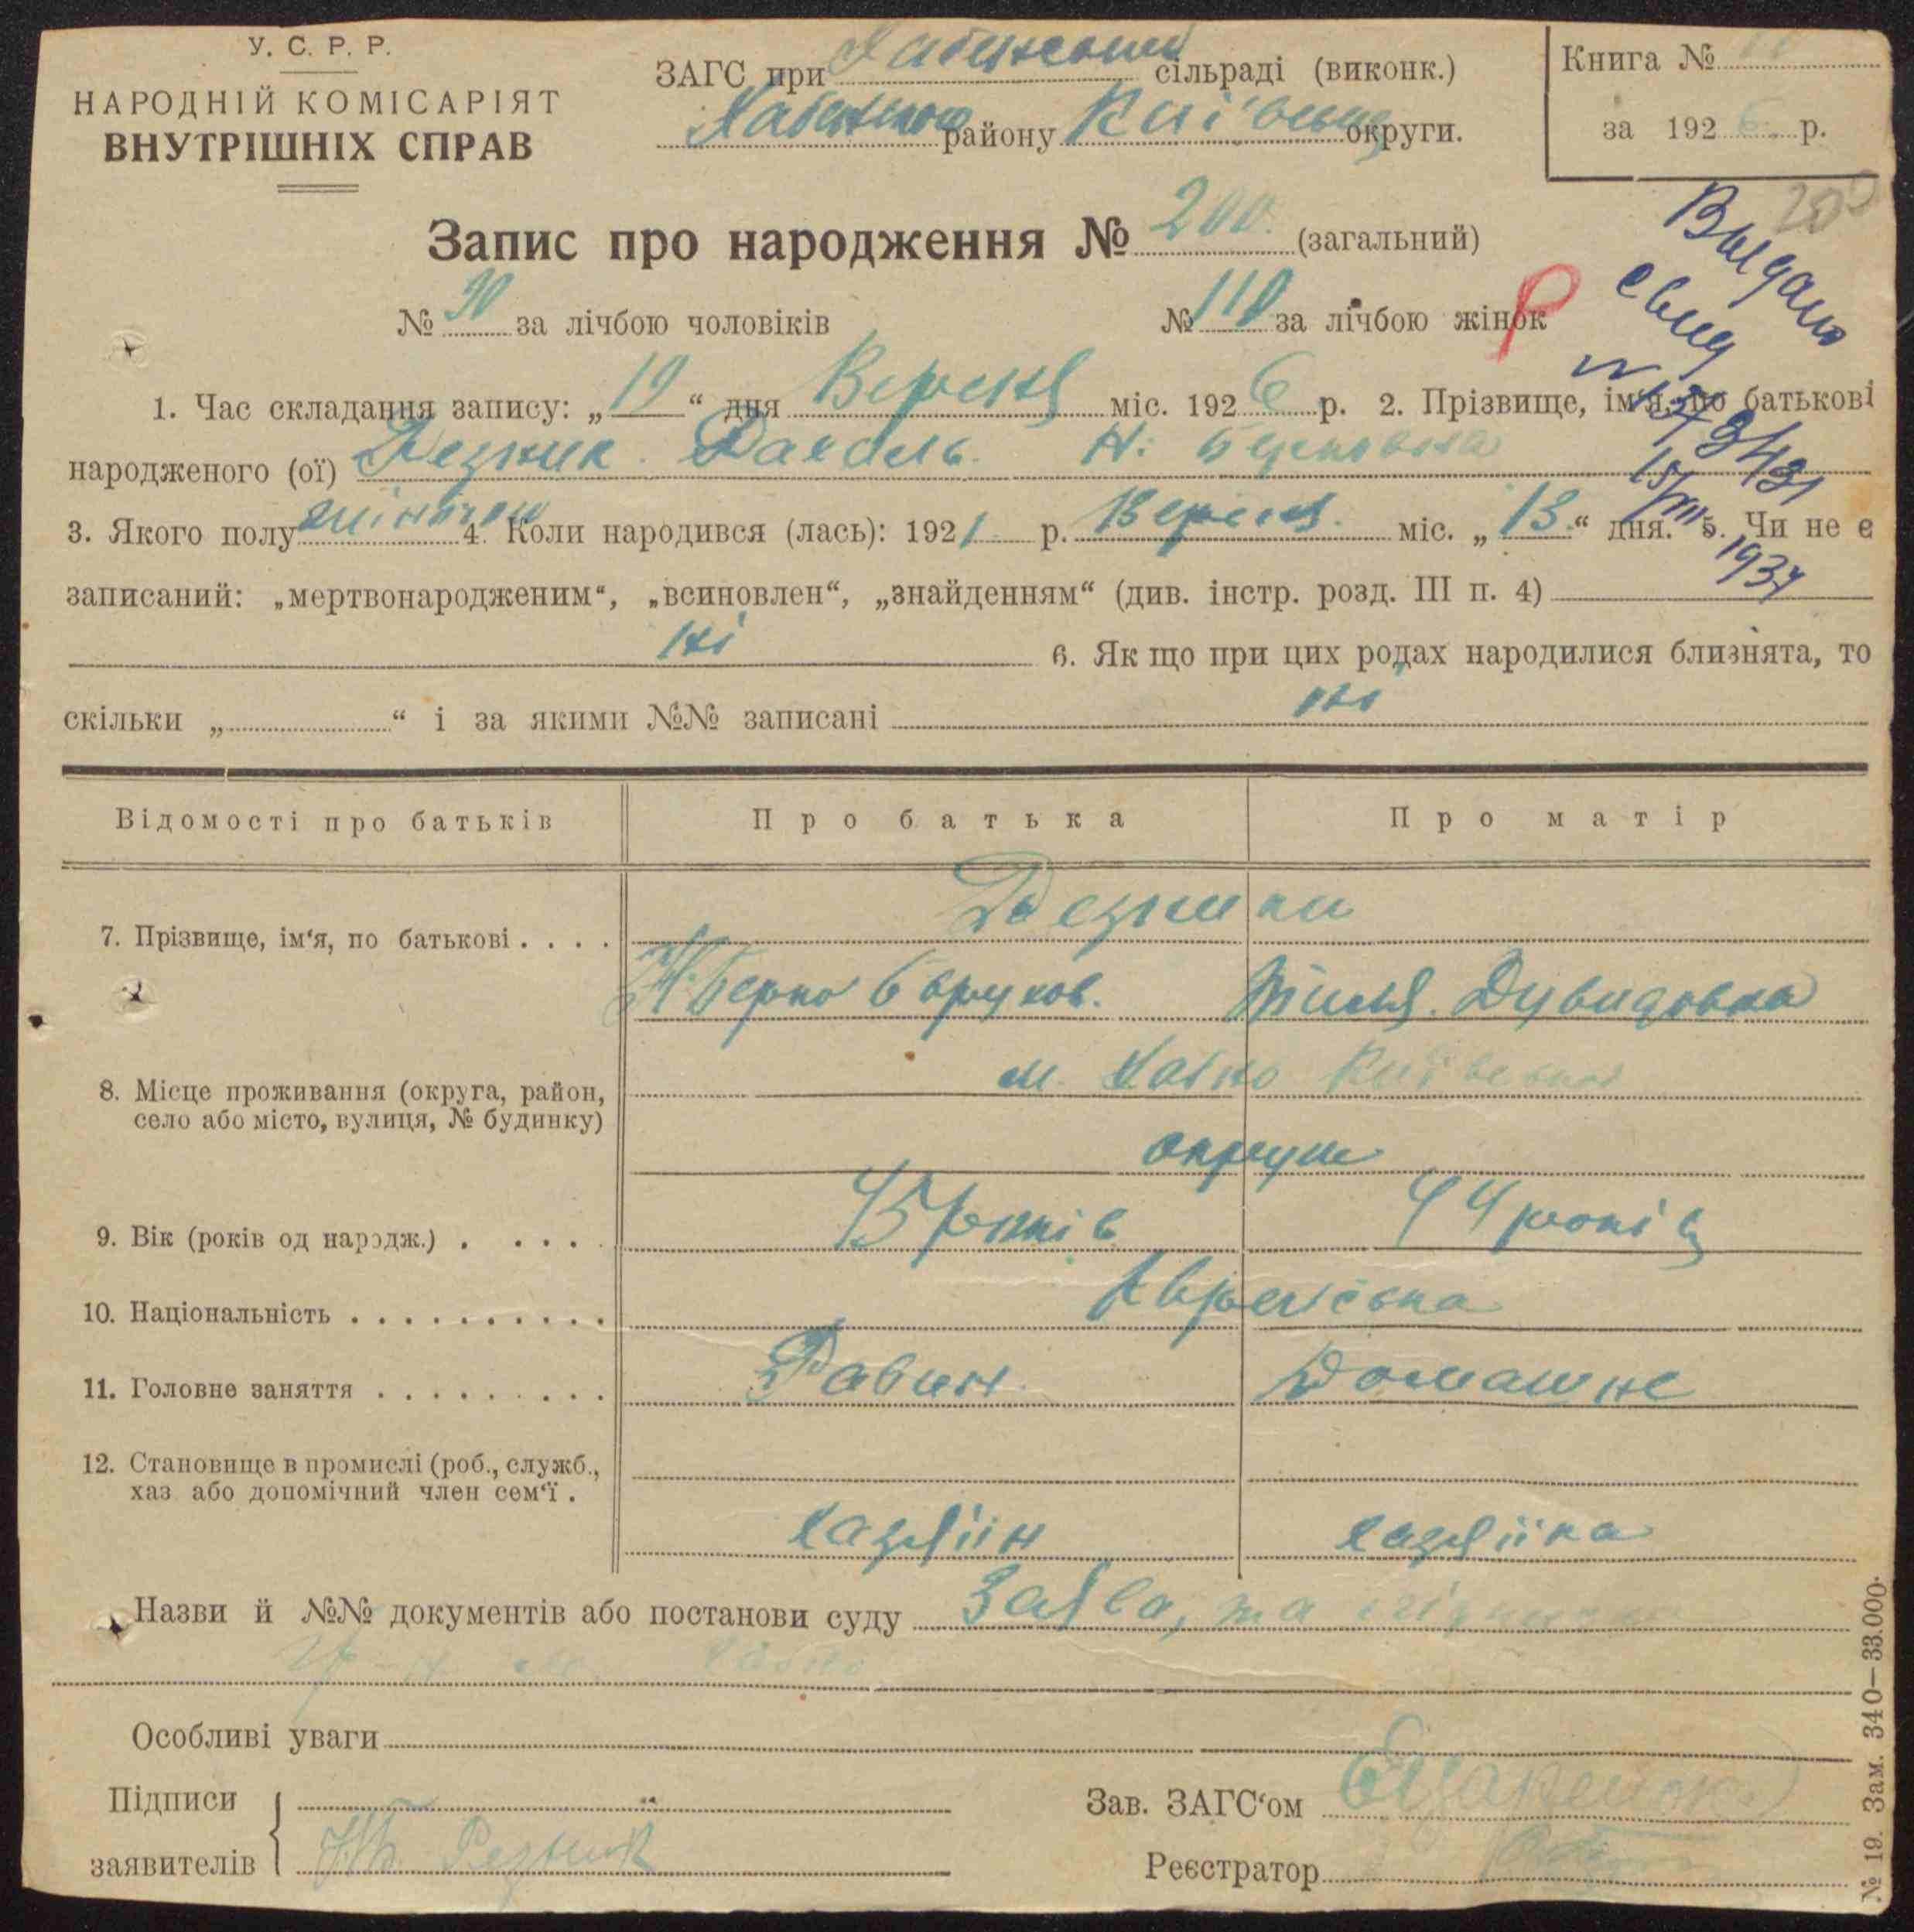 У. С. Р. Р.
НАРОДНІЙ КОМІСАРІЯТ
ВНУТРІШНІХ СПРАВ
ЗАГС при Хабенській сільраді (виконк.)
Хабенського району Київської округи.
Книга №
за 1926 р.
200
Запис про народження № 200. (загальний)
№ 90 за лічбою чоловіків № 110 за лічбою жінок
Р
Выдано
свид
№
15/VIII
1937
1. Час складання запису: „19“ дня Вересня міс. 1926 р. 2. Прізвище, ім'я, по батькові
народженого (ої) Резник. Рахель. Н: Берковна
3. Якого полу жіночого 4. Коли народився (лась): 1921 р. Вересня. міс. „13.“ дня. 5. Чи не є
записаний: „мертвонародженим“, „всиновлен“, „знайденням“ (див. інстр. розд. III п. 4)
Ні 6. Як що при цих родах народилися близнята, то
скільки „ “ і за якими №№ записані ні
Відомості про батьків Про батька Про матір
7. Прізвище, ім‘я, по батькові . . . . Резники
Н: Берко Боруков. Дувидовна
8. Місце проживання (округа, район, м. Хабно Київської
село або місто, вулиця, № будинку)
округи
9. Вік (років од народж.) . . . . . 45 років 44 років
10. Національність . . . . . . . . . . Єврейська
11. Головне заняття . . . . . . . . . Равин. Домашнє
12. Становище в промислі (роб., служб.,
хаз або допомічний член сем‘ї .
хазяїін хазяїіка
Назви й №№ документів або постанови суду Заява, та
Хабно
Особливі уваги
Підписи
заявителів Резник
Зав. ЗАГС‘ом
Реєстратор
№ 19. Зам. 340—33.000.